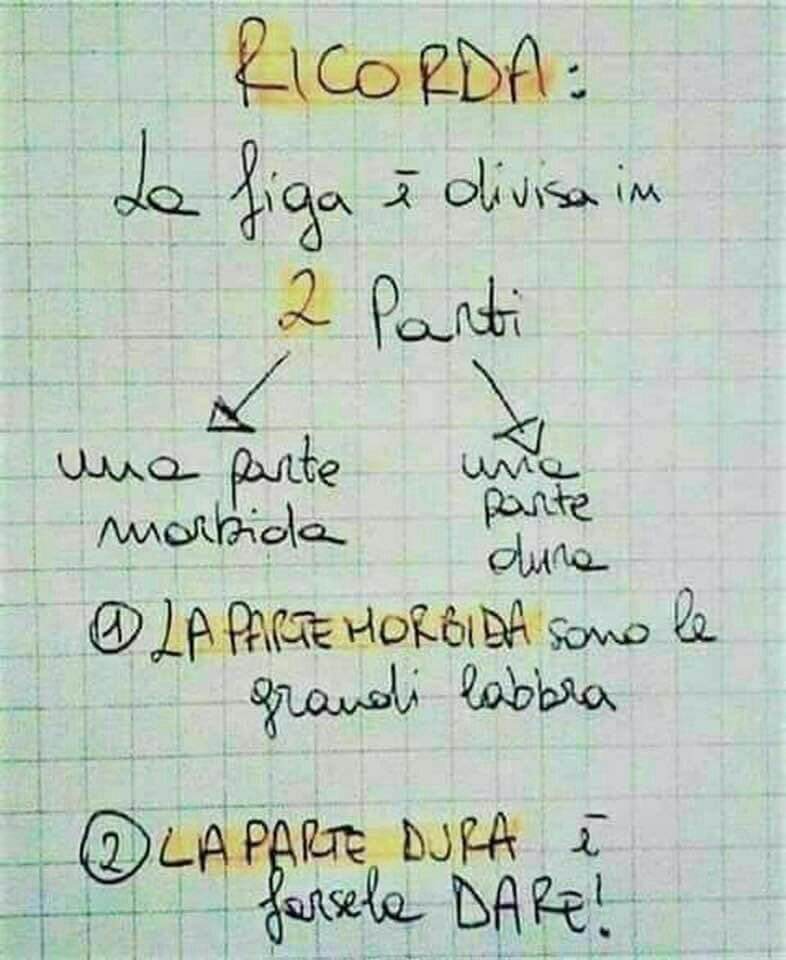 RICORDA:
La figa è divisa in
2 Parti
una parte
morbida
una
parte
dura
① LA PARTE MORBIDA sono le
grandi labbra
② LA PARTE DURA è
farsela DARE!